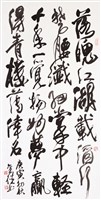 落魄江湖載酒行
楚腰纖細掌中輕
十年一覺揚州夢贏
得青樓薄倖名
庚寅初秋